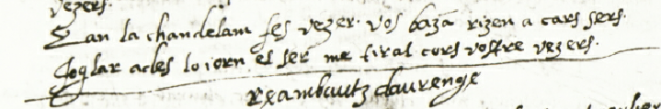 vezers.
Tan la chandelam fes vezer. vos baza rizen a cars sers.
Joglar acles lo iorn el ser me tiral cors vostre vezers.
reambautz daurenge